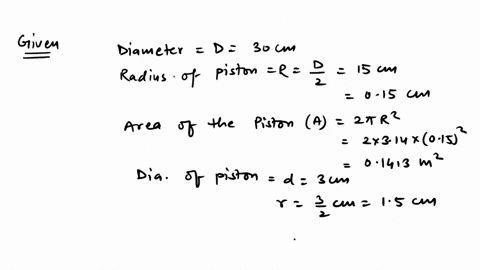 Given
Diameter = D = 30 cm
Radius of piston = R = D/2 = 15 cm
= 0.15 cm
Area of the Piston (A) = 2πR²
= 2×3.14×(0.15)²
= 0.1413 m²
Dia. of piston = d = 3cm
r = 3/2 cm = 1.5 cm